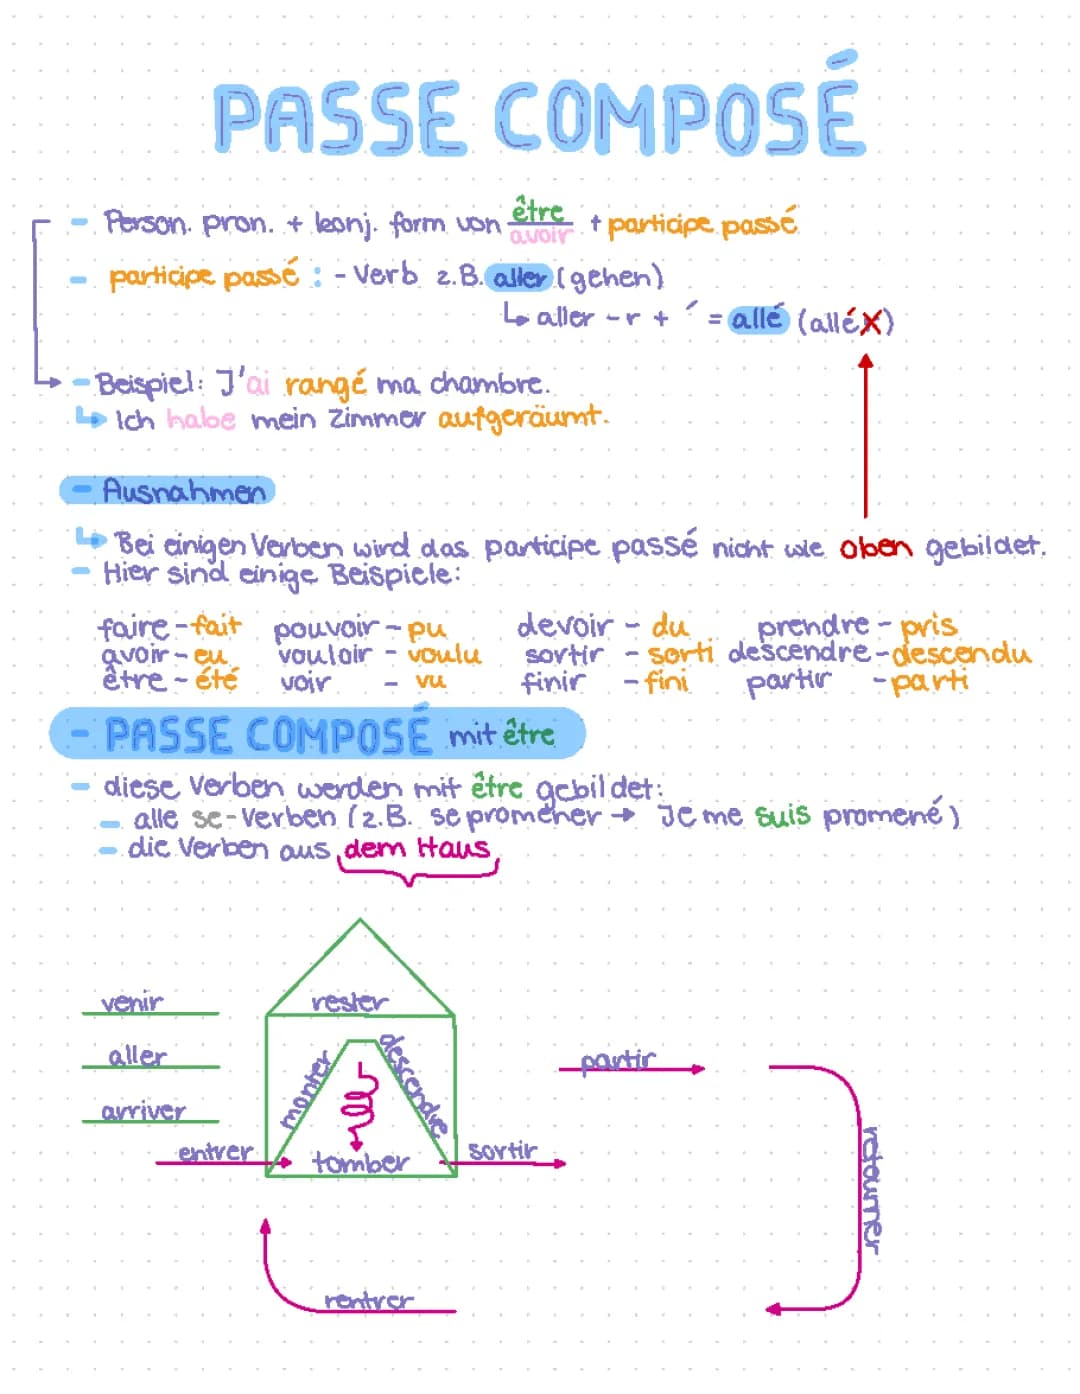 PASSE COMPOSÉ
- Person. pron. + konj. form von être/avoir + participe passé
- participe passé : - Verb z.B. aller (gehen)
↳ aller - r + ´ = allé (alléX)
- Beispiel: J'ai rangé ma chambre.
↳ Ich habe mein Zimmer aufgeräumt.
- Ausnahmen
↳ Bei einigen Verben wird das participe passé nicht wie oben gebildet.
- Hier sind einige Beispiele:
faire - fait pouvoir - pu devoir - du prendre - pris
avoir - eu vouloir - voulu sortir - sorti descendre - descendu
être - été voir - vu finir - fini partir - parti
- PASSE COMPOSÉ mit être
- diese Verben werden mit être gebildet:
- alle se-Verben (z.B. se promener → Je me suis promené)
- die Verben aus dem Haus
venir
rester
aller
monter
descendre
partir
arriver
entrer
tomber
sortir
retourner
rentrer